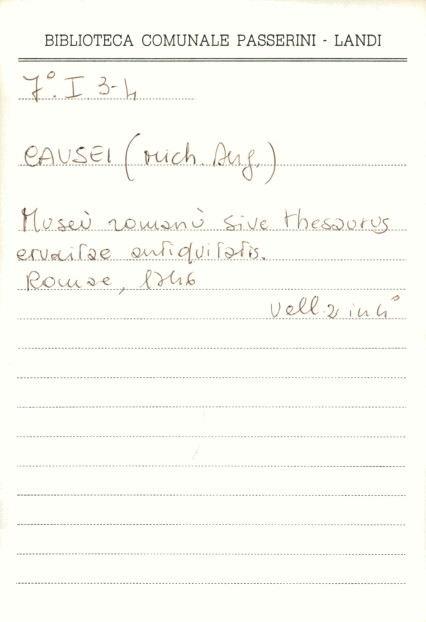 BIBLIOTECA COMUNALE PASSERINI - LANDI
7°. I. 3-4
CAUSEI (Mich. Ang.)
Museū romanū sive thesaurus
eruditae antiquitatis.
Romae, 1746
Voll. 2 in 4°